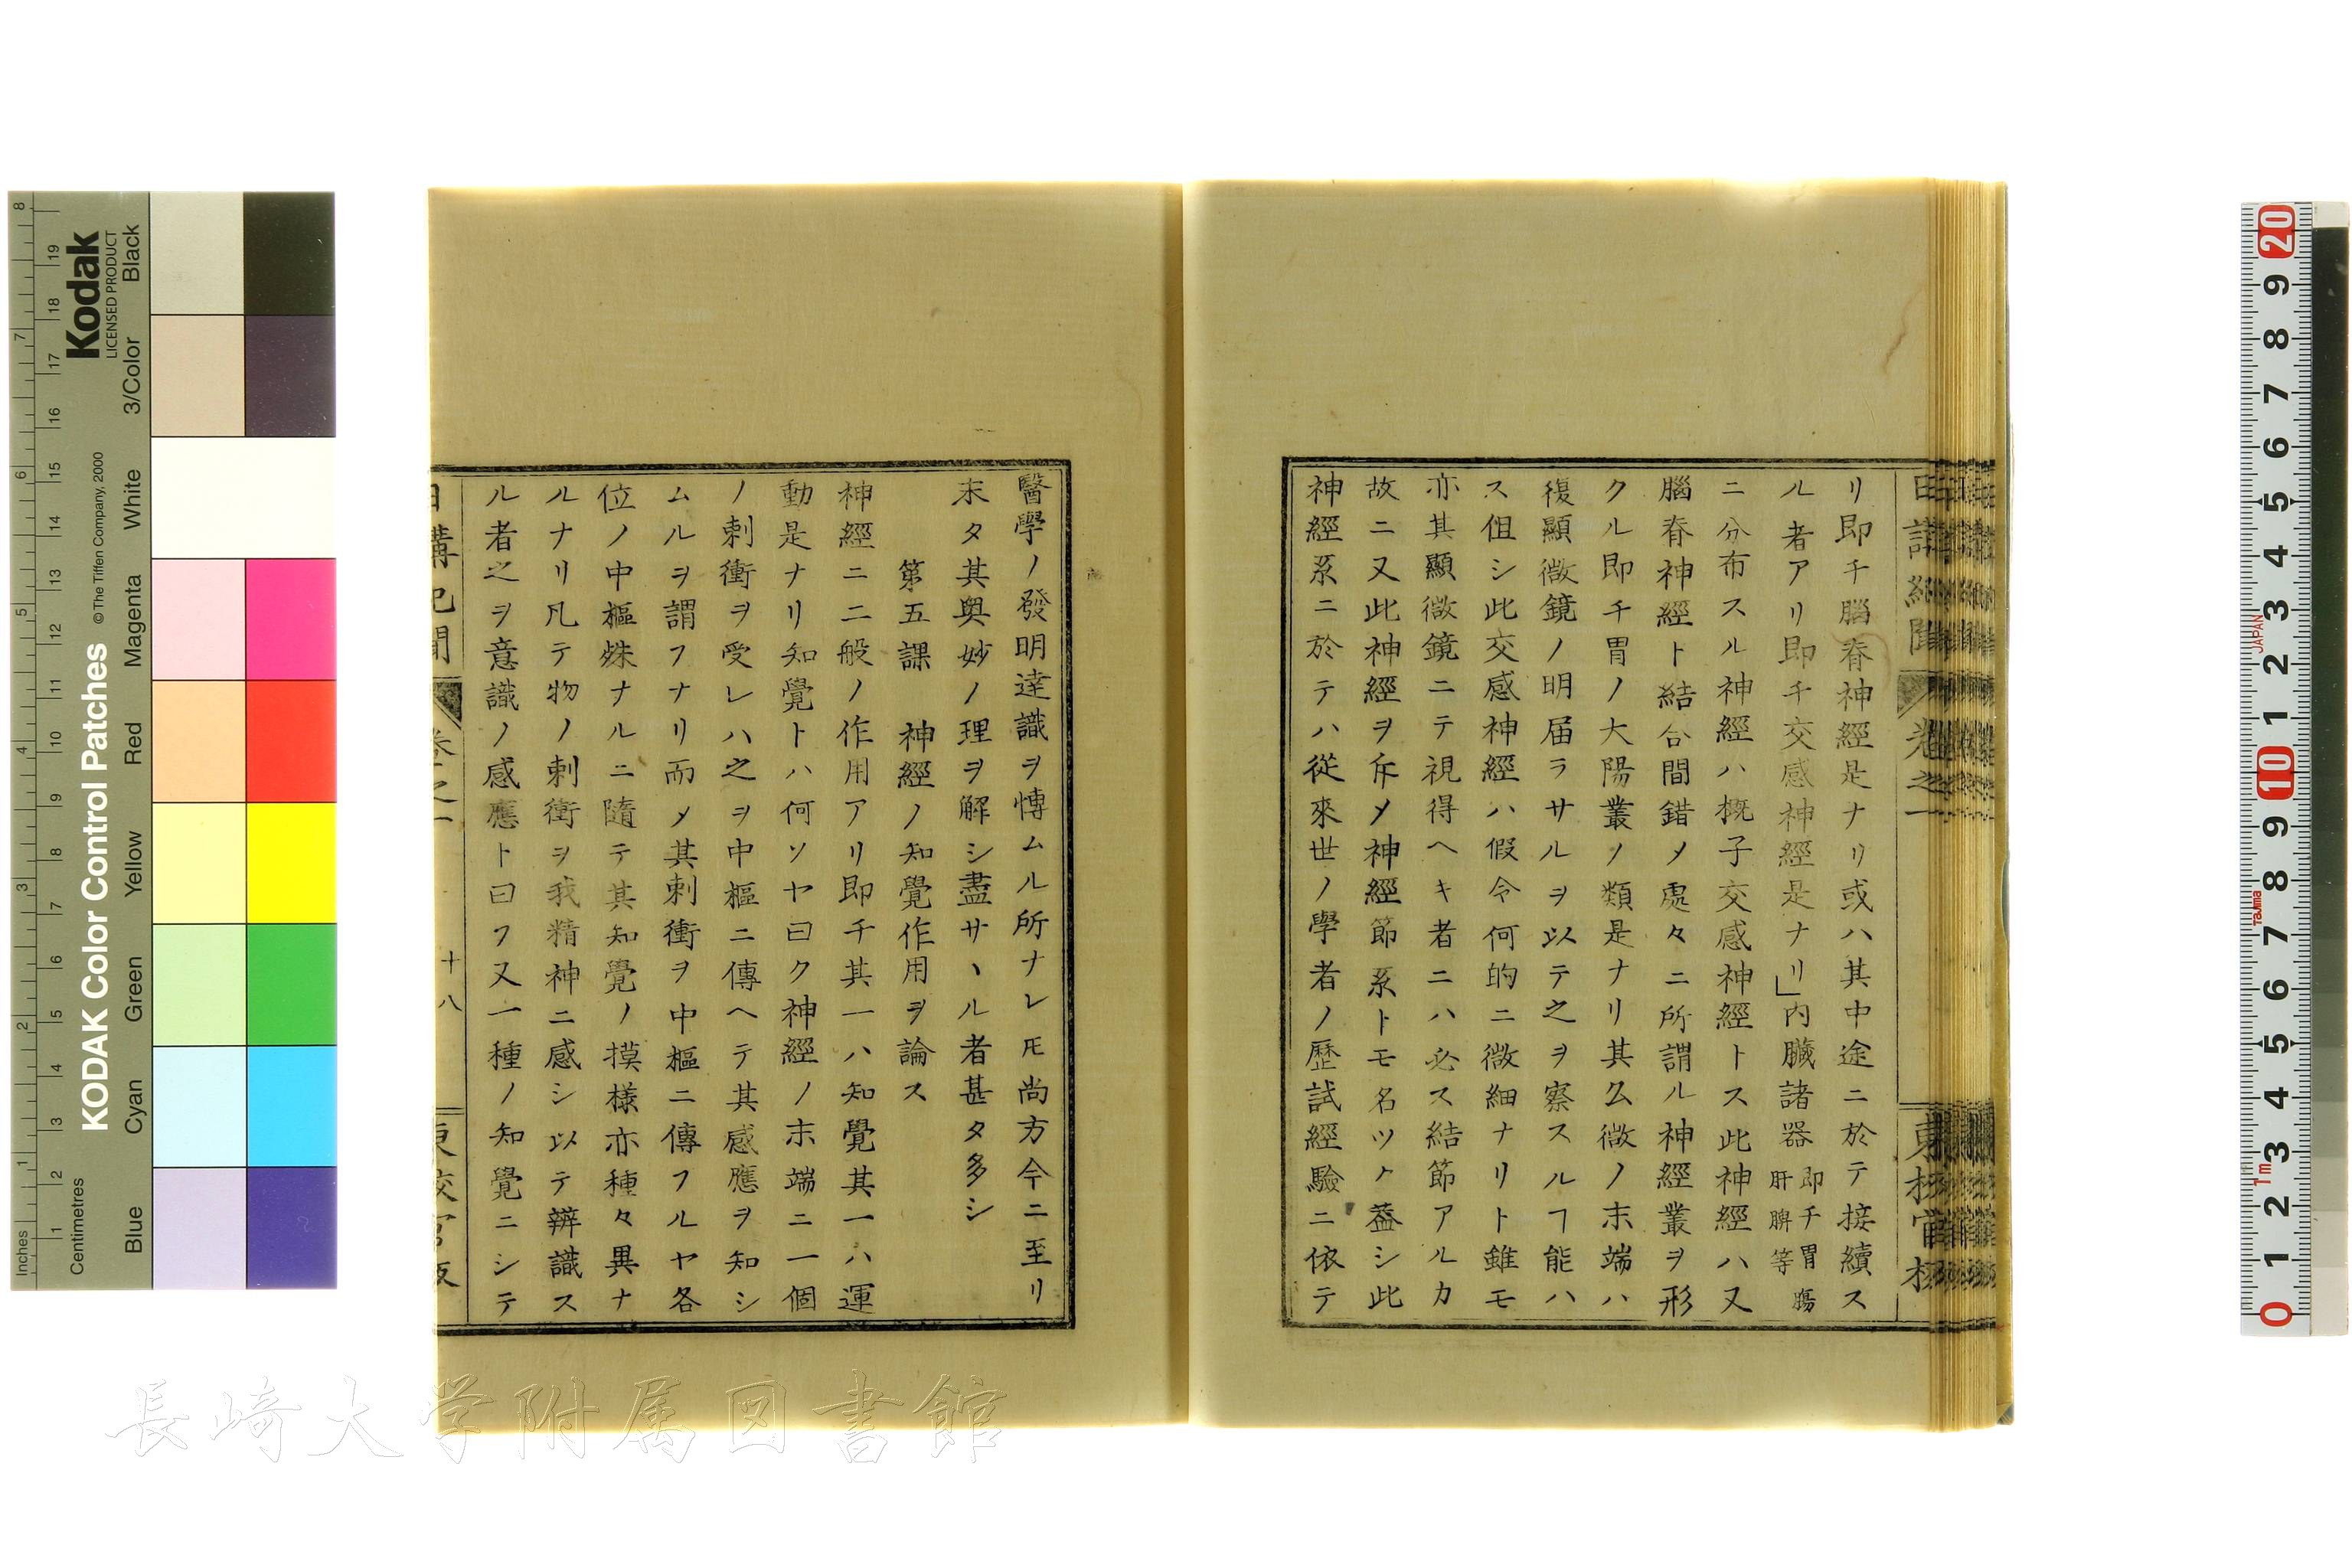 リ即チ腦脊神經是ナリ或ハ其中途ニ於テ接續ス
ル者アリ即チ交感神經是ナリ」内臟諸器即チ胃腸肝脾等
ニ分布スル神經ハ槪子交感神經トス此神經ハ又
腦脊神經ト結合間錯メ處々ニ所謂ル神經叢ヲ形
クル即チ胃ノ大陽叢ノ類是ナリ其厶微ノ末端ハ
復顯微鏡ノ明届ラサルヲ以テ之ヲ察スルヿ能ハ
ス但シ此交感神經ハ假令何的ニ微細ナリト雖モ
亦其顯微鏡ニテ視得ヘキ者ニハ必ス結節アルカ
故ニ又此神經ヲ斥メ神經節系トモ名ツク蓋シ此
神經系ニ於テハ從來世ノ學者ノ歷試經驗ニ依テ
醫學ノ發明達識ヲ慱ムル所ナレ𪜈尚方今ニ至リ
末タ其奥妙ノ理ヲ解シ盡サヽル者甚タ多シ
第五課 神經ノ知覺作用ヲ論ス
神經ニ二般ノ作用アリ即チ其一ハ知覺其一ハ運
動是ナリ知覺トハ何ソヤ曰ク神經ノ末端ニ一個
ノ刺衝ヲ受レハ之ヲ中樞ニ傳ヘテ其感應ヲ知シ
ムルヲ謂フナリ而メ其刺衝ヲ中樞ニ傳フルヤ各
位ノ中樞殊ナルニ隨テ其知覺ノ摸樣亦種々異ナ
ルナリ凡テ物ノ刺衝ヲ我精神ニ感シ以テ辨識ス
ル者之ヲ意識ノ感應ト曰フ又一種ノ知覺ニシテ
日講記聞 卷之一 十八
長崎大学附属図書館
KODAK Color Control Patches
© The Tiffen Company, 2000
Kodak
LICENSED PRODUCT
Inches
Centimetres
Blue Cyan Green Yellow Red Magenta White 3/Color Black